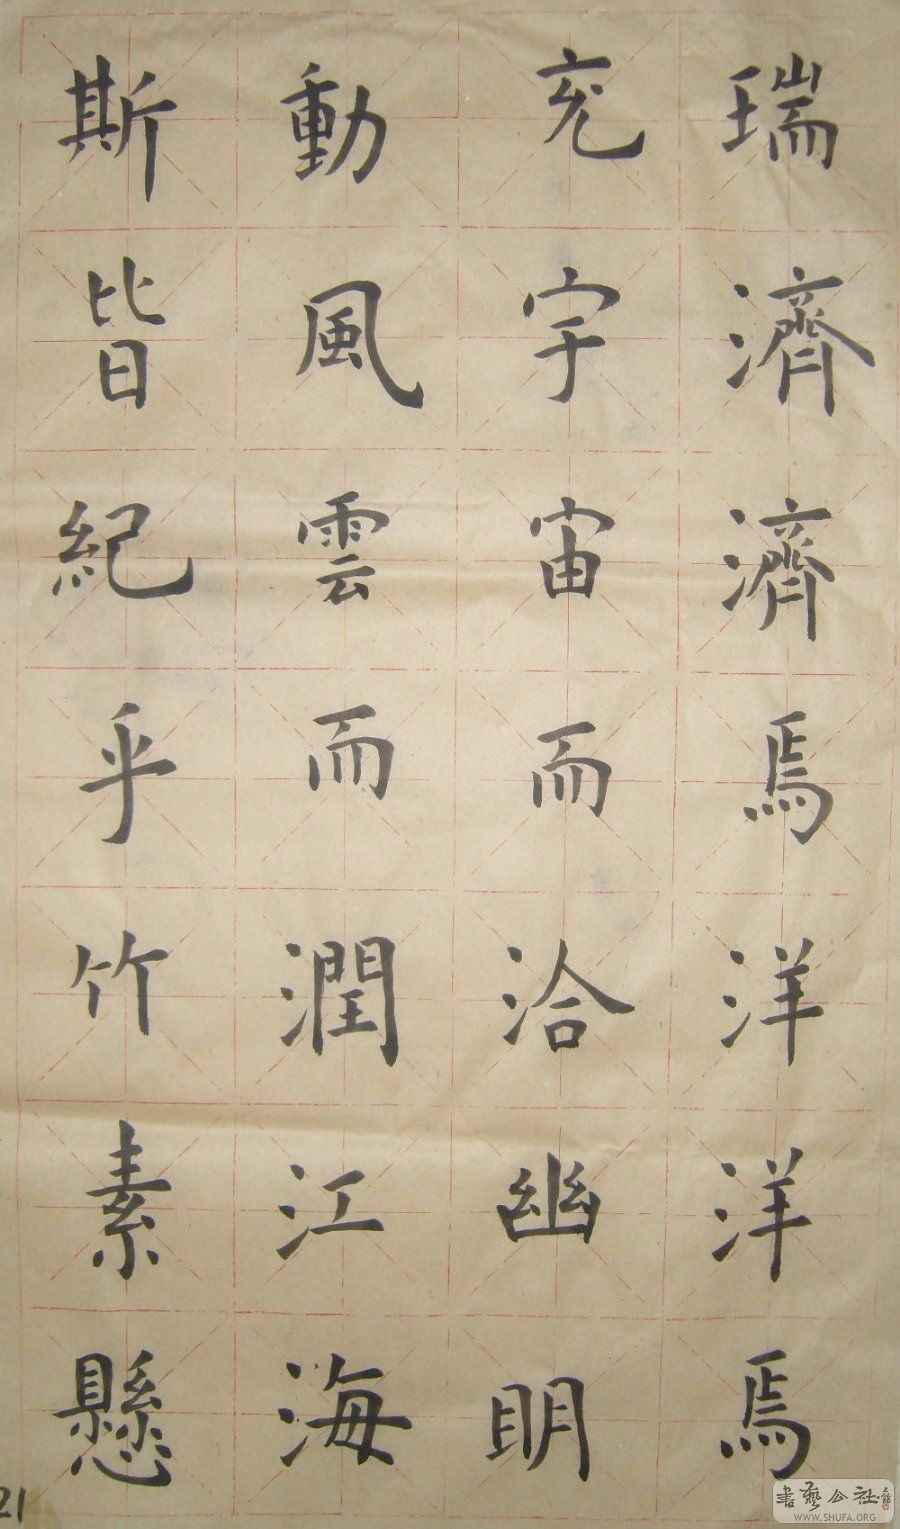 瑞濟濟焉洋洋焉
充宇宙而洽幽明
動風雲而潤江海
斯皆紀乎竹素懸
21
書藝公社
WWW.SHUFA.ORG